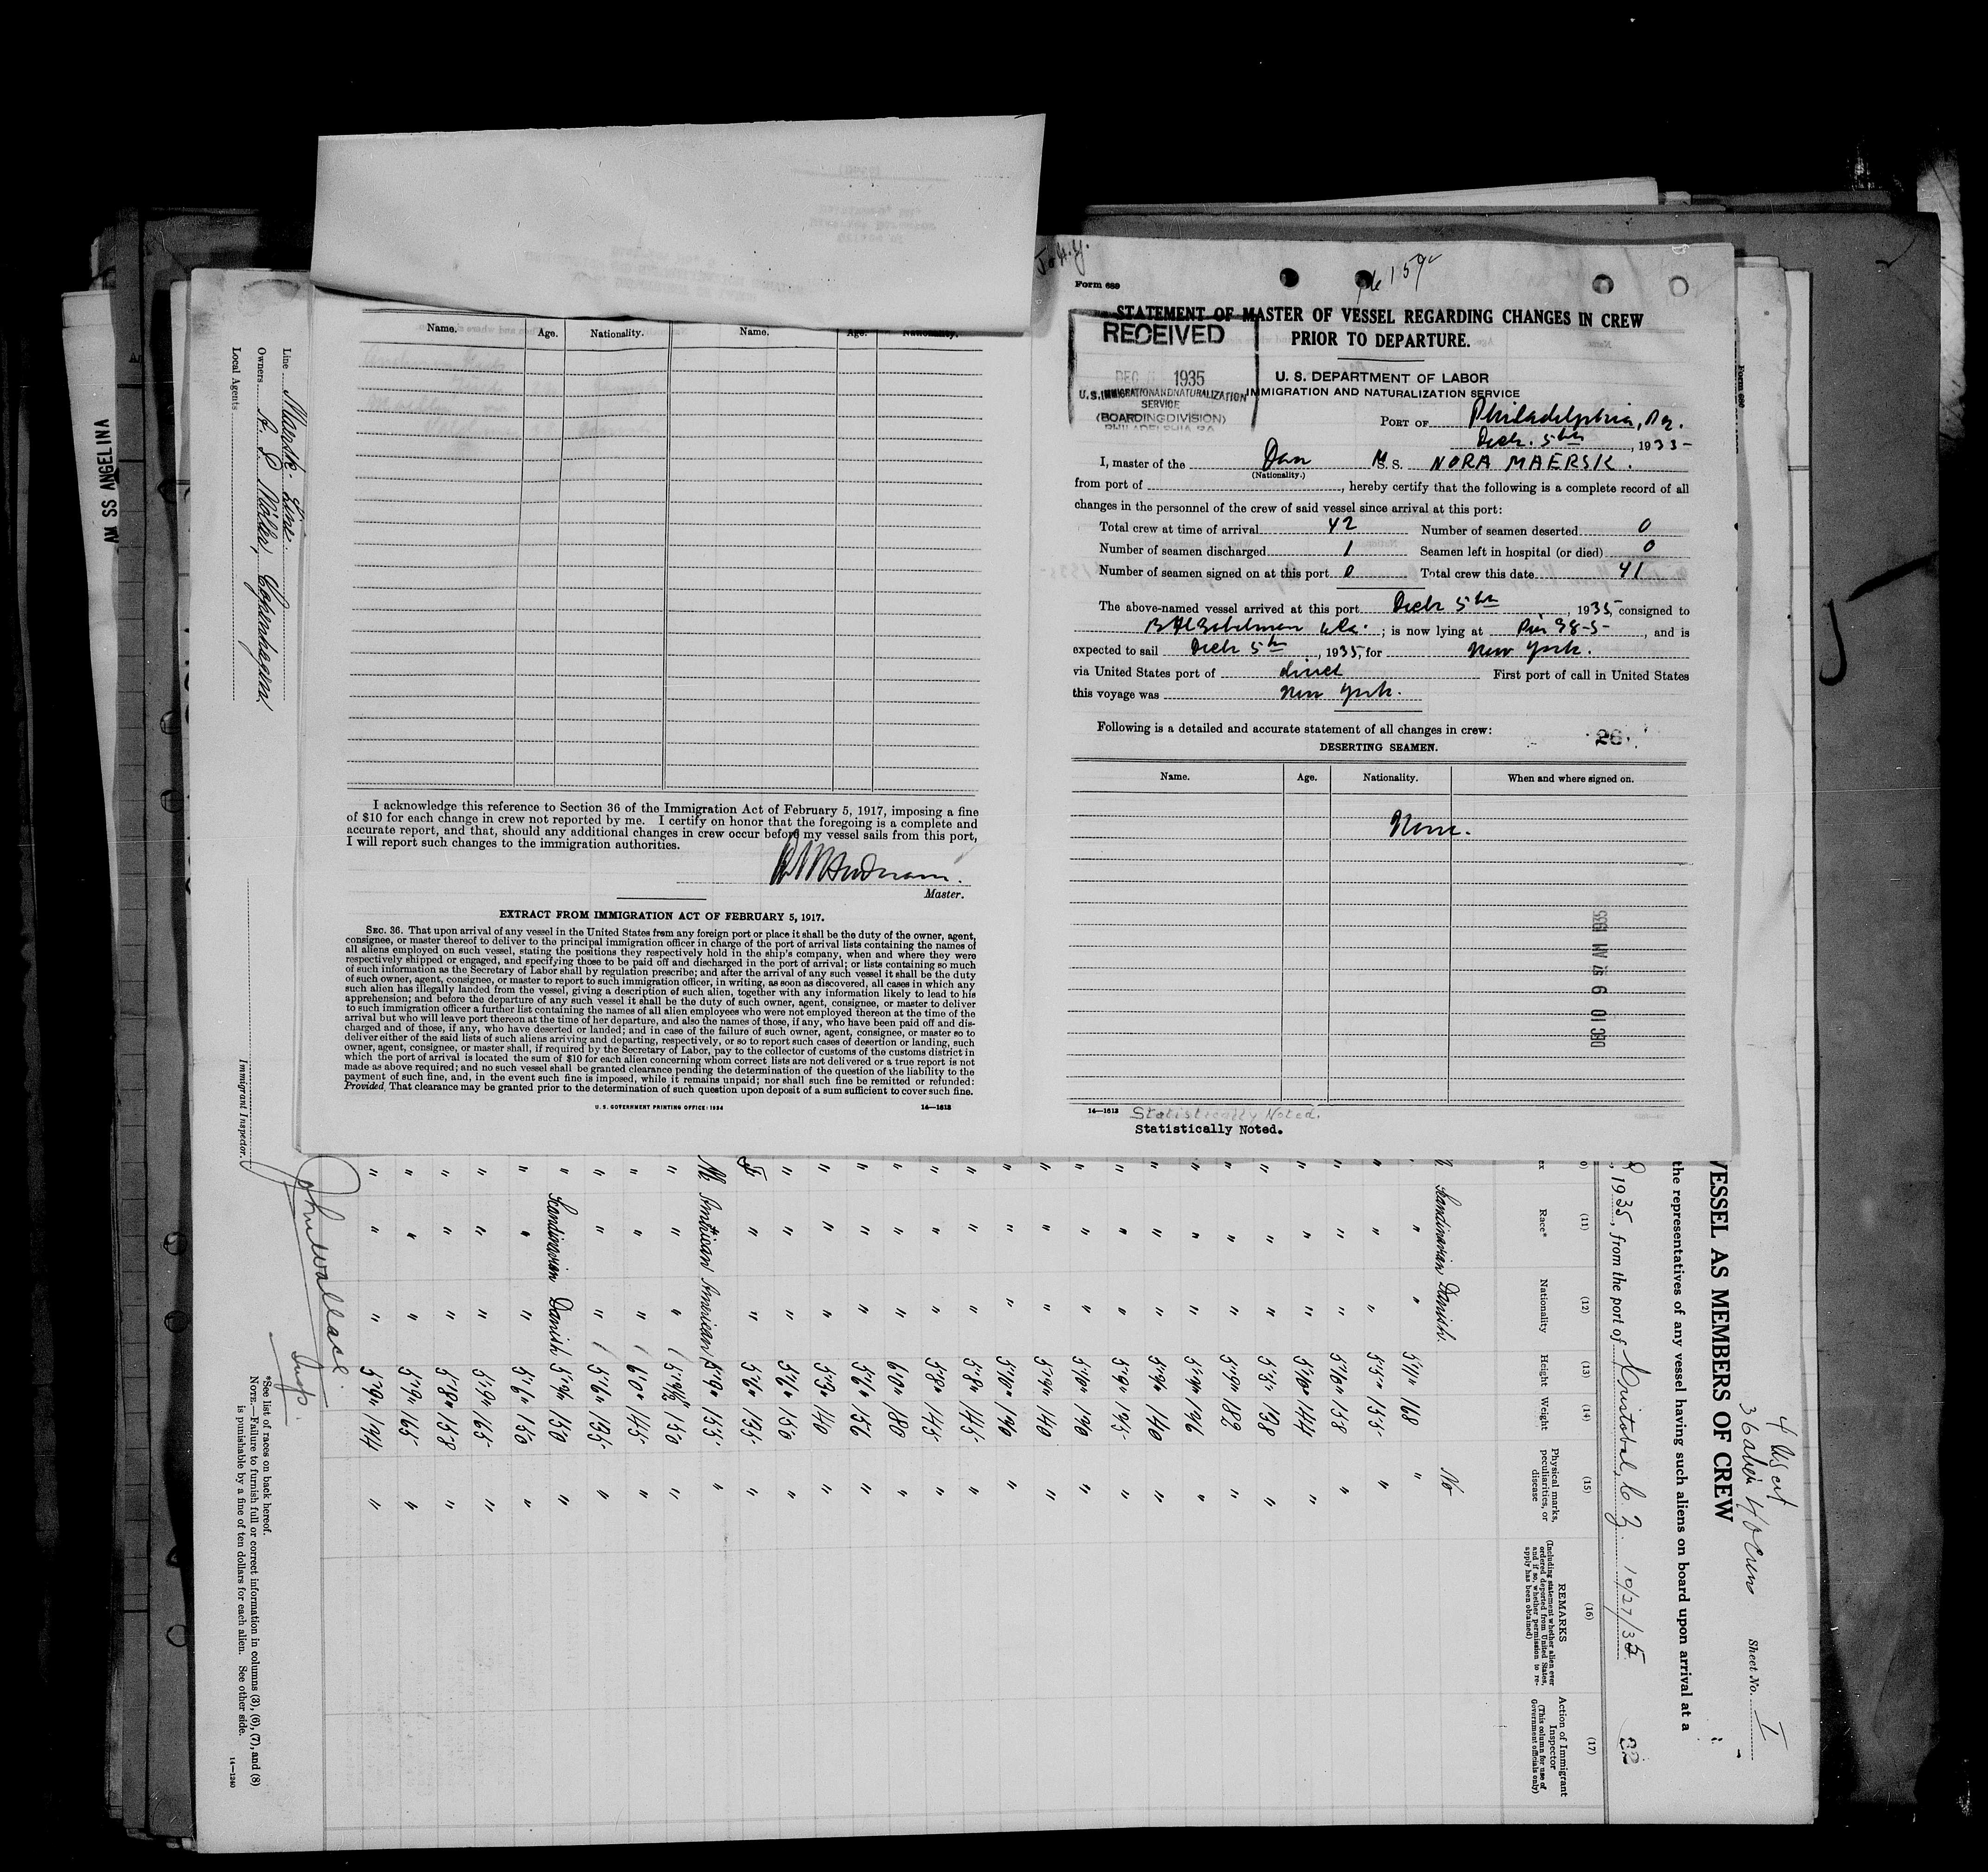 AM SS ANGELINA
Line Maersk Line.
Owners A. P. Möller, Copenhagen
Local Agents
Immigrant Inspector.
Name. Age. Nationality. Name. Age. Nationality.
I acknowledge this reference to Section 36 of the Immigration Act of February 5, 1917, imposing a fine
of $10 for each change in crew not reported by me. I certify on honor that the foregoing is a complete and
accurate report, and that, should any additional changes in crew occur before my vessel sails from this port,
I will report such changes to the immigration authorities.
Master.
EXTRACT FROM IMMIGRATION ACT OF FEBRUARY 5, 1917.
SEC. 36. That upon arrival of any vessel in the United States from any foreign port or place it shall be the duty of the owner, agent,
consignee, or master thereof to deliver to the principal immigration officer in charge of the port of arrival lists containing the names of
all aliens employed on such vessel, stating the positions they respectively hold in the ship's company, when and where they were
respectively shipped or engaged, and specifying those to be paid off and discharged in the port of arrival; or lists containing so much
of such information as the Secretary of Labor shall by regulation prescribe; and after the arrival of any such vessel it shall be the duty
of such owner, agent, consignee, or master to report to such immigration officer, in writing, as soon as discovered, all cases in which any
such alien has illegally landed from the vessel, giving a description of such alien, together with any information likely to lead to his
apprehension; and before the departure of any such vessel it shall be the duty of such owner, agent, consignee, or master to deliver
to such immigration officer a further list containing the names of all alien employees who were not employed thereon at the time of the
arrival but who will leave port thereon at the time of her departure, and also the names of those, if any, who have been paid off and dis-
charged and of those, if any, who have deserted or landed; and in case of the failure of such owner, agent, consignee, or master so to
deliver either of the said lists of such aliens arriving and departing, respectively, or so to report such cases of desertion or landing, such
owner, agent, consignee, or master shall, if required by the Secretary of Labor, pay to the collector of customs of the customs district in
which the port of arrival is located the sum of $10 for each alien concerning whom correct lists are not delivered or a true report is not
made as above required; and no such vessel shall be granted clearance pending the determination of the question of the liability to the
payment of such fine, and, in the event such fine is imposed, while it remains unpaid; nor shall such fine be remitted or refunded:
Provided, That clearance may be granted prior to the determination of such question upon deposit of a sum sufficient to cover such fine.
U. S. GOVERNMENT PRINTING OFFICE: 1934 14—1613
Form 689
159
STATEMENT OF MASTER OF VESSEL REGARDING CHANGES IN CREW
PRIOR TO DEPARTURE.
RECEIVED
DEC 1935
U. S. IMMIGRATION AND NATURALIZATION
SERVICE
(BOARDING DIVISION)
PHILADELPHIA PA.
U. S. DEPARTMENT OF LABOR
IMMIGRATION AND NATURALIZATION SERVICE
PORT OF Philadelphia, Pa.
Decb. 5th, 1935
I, master of the Dan M. S. NORA MAERSK.
(Nationality.)
from port of , hereby certify that the following is a complete record of all
changes in the personnel of the crew of said vessel since arrival at this port:
Total crew at time of arrival 42 Number of seamen deserted 0
Number of seamen discharged 1 Seamen left in hospital (or died) 0
Number of seamen signed on at this port 0 Total crew this date 41
The above-named vessel arrived at this port Decb 5th, 1935, consigned to
; is now lying at Pier 98-S, and is
expected to sail Decb 5th, 1935, for New York.
via United States port of direct First port of call in United States
this voyage was New York.
Following is a detailed and accurate statement of all changes in crew: 26
DESERTING SEAMEN.
Name. Age. Nationality. When and where signed on.
None.
DEC 10 9 57 AM 1935
14—1613
Statistically Noted.
Statistically Noted.
4 US cit
36 alien 40 crew
Sheet No. I
VESSEL AS MEMBERS OF CREW
the representatives of any vessel having such aliens on board upon arrival at a
, 1935, from the port of Cristobal, C Z 10/27/35
(11) (12) (13) (14) (15) (16) (17)
Race* Nationality Height Weight
Physical marks, peculiarities, or disease
REMARKS
(Including statement whether alien ever
ordered deported from United States,
and if so, whether permission to re-
apply has been obtained)
Action of Immigrant
Inspector
(This column for use of
Government officials only)
Scandinavian Danish. 5'11" 168 No
" " 5'5" 155 "
" " 5'10" 158 "
" " 5'10" 144 "
" " 5'5" 138 "
" " 5'9" 182 "
" " 5'9" 176 "
" " 5'9½" 140 "
" " 5'9" 175 "
" " 5'10" 170 "
" " 5'9" 140 "
" " 5'10" 170 "
" " 5'8" 145 "
" " 5'8" 145 "
" " 6'0" 180 "
" " 5'7½" 157 "
" " 5'3" 140 "
" " 5'7½" 150 "
F " " 5'6" 135 "
M American American 5'9" 155 "
" " 5'9½" 150 "
" " 6'0" 145 "
" " 5'6" 135 "
" Scandinavian Danish 5'9½" 150 "
" " " 5'6" 150 "
" " " 5'9" 165 "
" " " 5'8" 158 "
" " " 5'9" 165 "
" " " 5'9" 194 "
John Wallace.
Insp.
*See list of races on back hereof.
NOTE.—Failure to furnish full or correct information in columns (3), (6), (7), and (8)
is punishable by a fine of ten dollars for each alien. See other side.
14—1240